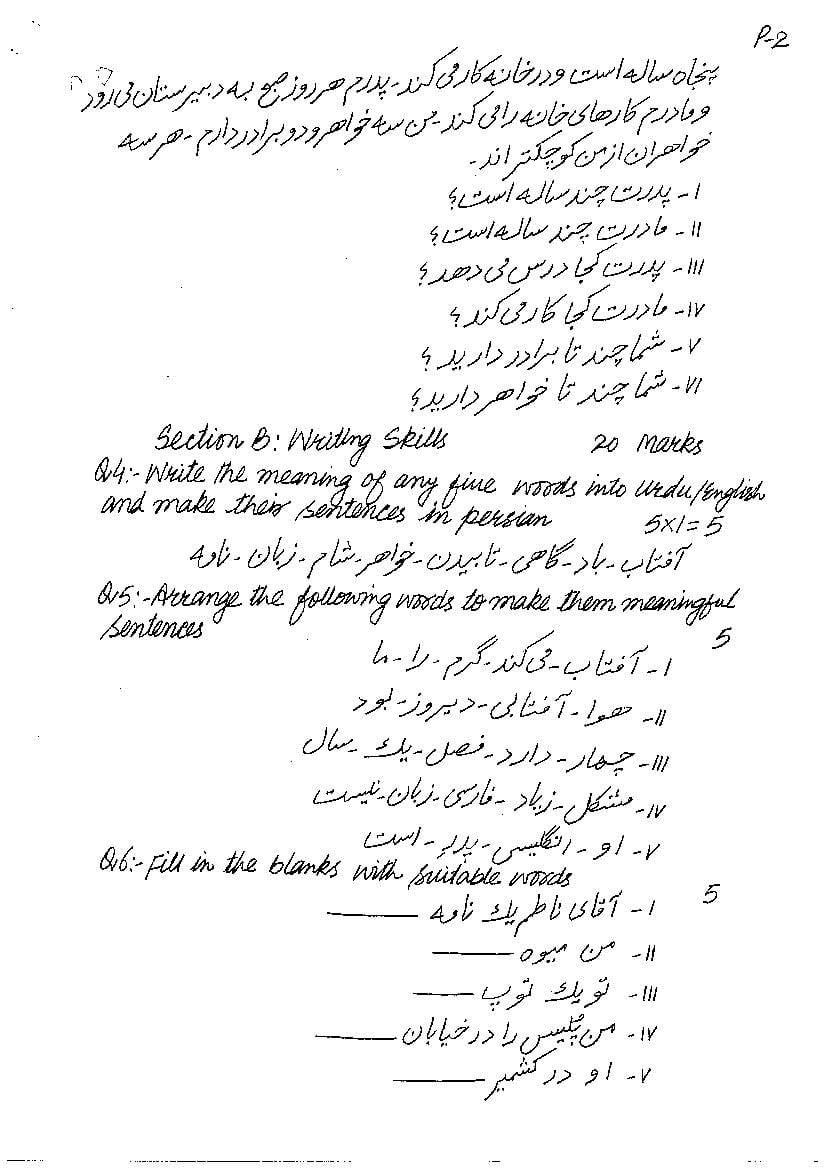 P-2
پنجاه ساله است و در خانه کار می کند - پدرم هر روز صبح به دبیرستان می رود
و مادرم کارهای خانه را می کند - من سه خواهر و دو برادر دارم - هر سه
خواهران از من کوچکتر اند -
I - پدرت چند ساله است؟
II - مادرت چند ساله است؟
III - پدرت کجا درس می دهد؟
IV - مادرت کجا کار می کند؟
V - شما چند تا برادر دارید؟
VI - شما چند تا خواهر دارید؟
Section B: Writing Skills 20 Marks
Q4:- Write the meaning of any five words into Urdu/English
and make their sentences in persian 5x1=5
آفتاب - باد - گاهی - تابیدن - خواهر - شام - زبان - نامه
Q5:- Arrange the following words to make them meaningful
sentences 5
I - آفتاب - می کند - گرم - را - ما
II - هوا - آفتابی - دیروز - بود
III - چهار - دارد - فصل - یک - سال
IV - مشکل - زیاد - فارسی - زبان - نیست
V - او - انگلیسی - پدر - است
Q6:- Fill in the blanks with suitable words
5
I - آقای ناظم یک نامه ______
II - من میوه ______
III - تو یک توپ ______
IV - من پلیس را در خیابان ______
V - او در کشمیر ______